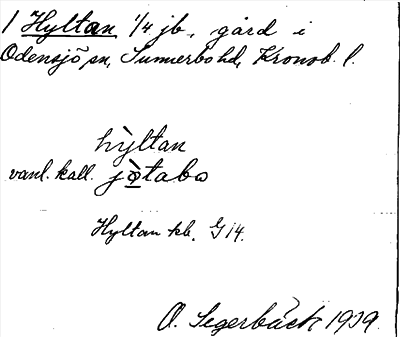 1 Hyltan 1/4 jb, gård i
Odensjö sn, Sunnerbo hd, Kronob. l.
hỳltan
vanl. kall. jø̀tabo
Hyltan kb. G 14.
O. Segerbäck 1919.